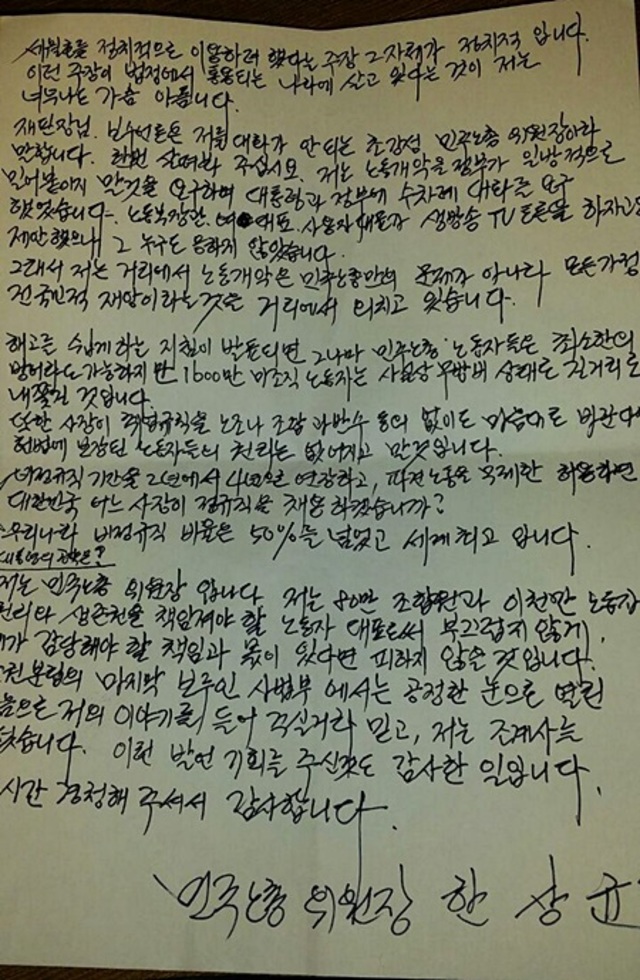 세월호를 정치적으로 이용하려 했다는 주장 그자체가 정치적 입니다.
이런 주장이 법정에서 통용되는 나라에 살고 있다는 것이 저는
너무나도 가슴 아픕니다.
재판장님. 보수언론은 저를 대화가 안 되는 초강성 민주노총 위원장이라
말합니다. 한번 살펴봐 주십시오. 저는 노동개악을 정부가 일방적으로
밀어붙이지 말것을 요구하며 대통령과 정부에 수차례 대화를 요구
했었습니다. 노동부장관, 여 대표, 사용자 대표가 생방송 TV토론을 하자고도
제안 했으나 그 누구도 응하지 않았습니다.
그래서 저는 거리에서 노동개악은 민주노총만의 문제가 아니라 모든가정
전국민적 재앙이라는것을 거리에서 외치고 있습니다.
해고를 쉽게하라는 지침이 발동되면 그나마 민주노총 노동자들은 최소한의
방어라도 가능하지만 1600만 미조직 노동자는 사실상 무방비 상태로 길거리로
내쫓길 것입니다.
또한 사장이 취업규칙을 노조나 조합 과반수 동의 없이도 마음대로 바꾼다면
헌법에 보장된 노동자들의 권리는 없어지고 말것입니다.
비정규직 기간을 2년에서 4년으로 연장하고, 파견노동을 무제한 허용하면
대한민국 어느 사장이 정규직을 채용 하겠습니까?
우리나라 비정규직 비율은 50%를 넘었고 세계최고 입니다.
저는 민주노총 위원장 입니다. 저는 80만 조합원과 이천만 노동자
권리와 생존권을 책임져야 할 노동자 대표로써 부끄럽지 않게,
가 감당해야 할 책임과 몫이 있다면 피하지 않을 것입니다.
권분립의 마지막 보루인 사법부 에서는 공정한 눈으로 열린
음으로 저의 이야기를 들어 주실거라 믿고, 저는 조계사를
습니다. 이런 발언 기회를 주신것도 감사한 일입니다.
시간 경청해 주셔서 감사합니다.
민주노총 위원장 한 상 균